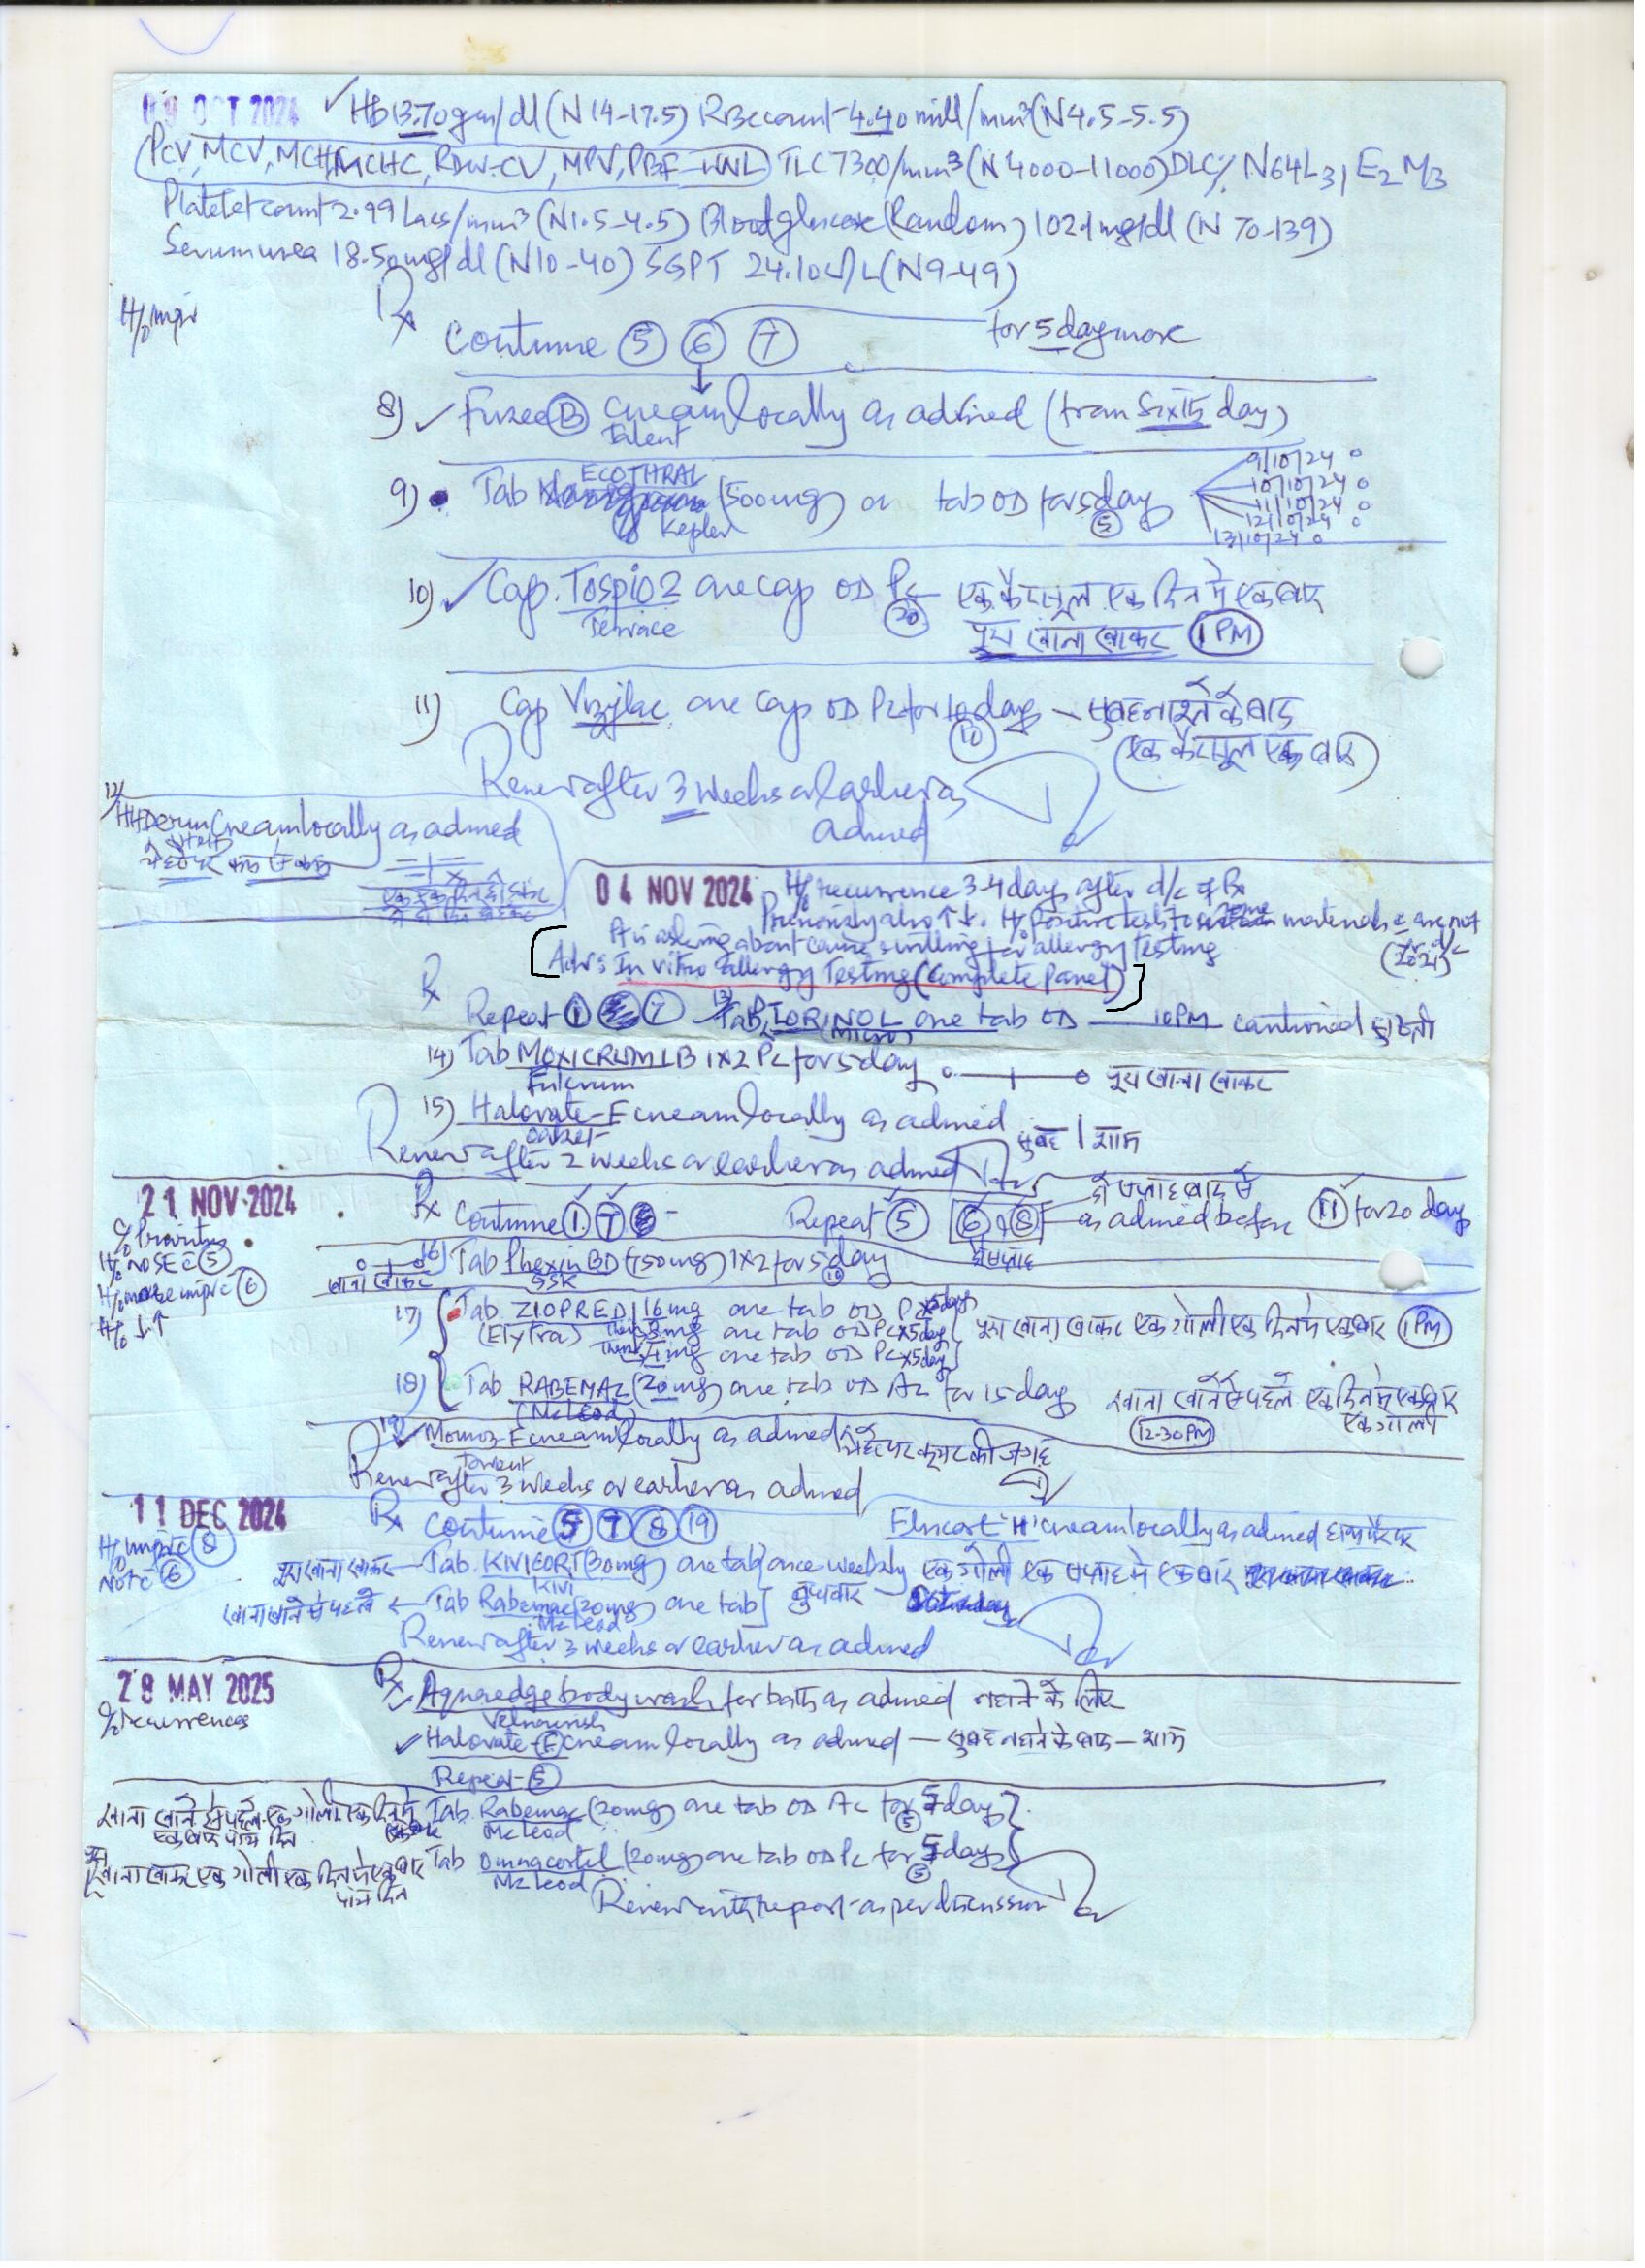 09 OCT 2024 ✓Hb 13.70gm/dl (N 14-17.5) RBC count-4.40 mill/mm³(N4.5-5.5)
PCV, MCV, MCH, MCHC, RDW-CV, MPV, PBF-WNL TLC 7300/mm³ (N 4000-11000) DLC% N64 L31 E2 M3
Platelet count 2.99 Lacs/mm³ (N1.5-4.5) Blood glucose (Random) 102.1 mg/dl (N 70-139)
Serum urea 18.50mg/dl (N10-40) SGPT 24.10U/L (N9-49)
H/o impr
Rx
Continue 5 6 7 for 5 day more
8) ✓ Fucee B cream locally as advised (from sixth day)
Talent
9) Tab ECOTHRAL (500mg) on tab OD for 5 day
Kepler 5
9/10/24
10/10/24
11/10/24
12/10/24
13/10/24
10) ✓ Cap. Tospio 2 one cap OD Pc एक कैप्सूल एक दिन में एक बार
Terrace 20 पूरा खाना खाकर 1 PM
11) Cap Vizylac one cap OD Pc for 10 days - सुबह नाश्ते के बाद
10 (एक कैप्सूल एक बार)
Renew after 3 weeks or earlier as
advised
12) HHDerm Cream locally as advised
04 NOV 2024 H/o recurrence 3-4 day after d/c of Rx
Previously also ↑↓. H/o positive tests to materials are not
Pt is asking about cause & willing for allergy testing
Adv: In vitro allergy Testing (Complete Panel)
Rx
Repeat 1 7 13) Tab. one tab OD 10PM
14) Tab MOXICRUM LB 1x2 Pc for 5 day पूरा खाना खाकर
Fulcrum
15) Halovate-F cream locally as advised सुबह | शाम
Renew after 2 weeks or earlier as advised
21 NOV 2024 Rx Continue 1 7 Repeat 5 6 , 8 as advised before 11 for 20 day
H/o no SE c 5
H/o more impr c 6
H/o ↓↑
खाना खाकर 16) Tab Phexin BD (750mg) 1x2 for 5 day
GSK 10
17) Tab ZIOPRED 16mg one tab OD Pc x5day
(Elytra) Then 8mg one tab OD Pc x5day पूरा खाना खाकर एक गोली एक दिन में एक बार 1 PM
Then 4mg one tab OD Pc x5day
18) Tab RABEMAC (20mg) one tab OD Ac for 15 day खाना खाने से पहले एक दिन में एक बार
(McLeod) 12-30 PM एक गोली
19) ✓ Momoz-F cream locally as advised
Torrent
Renew after 3 weeks or earlier as advised
11 DEC 2024 Rx Continue 5 7 8 19 Elucort 'H' cream locally as advised
H/o impr c 8
Not c 6
पूरा खाना खाकर ← Tab. KIVICORT (30mg) one tab once weekly एक गोली एक सप्ताह में एक बार
KIVI
खाना खाने से पहले ← Tab Rabemac (20mg) one tab बुधवार
McLeod
Renew after 3 weeks or earlier as advised
28 MAY 2025 Rx
✓ Aquaedge body wash for bath as advised नहाने के लिए
Velnourish
c/o recurrences
✓ Halovate-F cream locally as advised - सुबह नहाने के बाद - शाम
Repeat-5
खाना खाने से पहले एक गोली एक दिन में Tab. Rabemac (20mg) one tab OD Ac for 5 days
एक बार पांच दिन McLeod 5
पूरा खाना खाकर एक गोली एक दिन में एक बार Tab Omnacortil (20mg) one tab OD Pc for 5 days
पांच दिन McLeod 5
Renew with report as per discussion